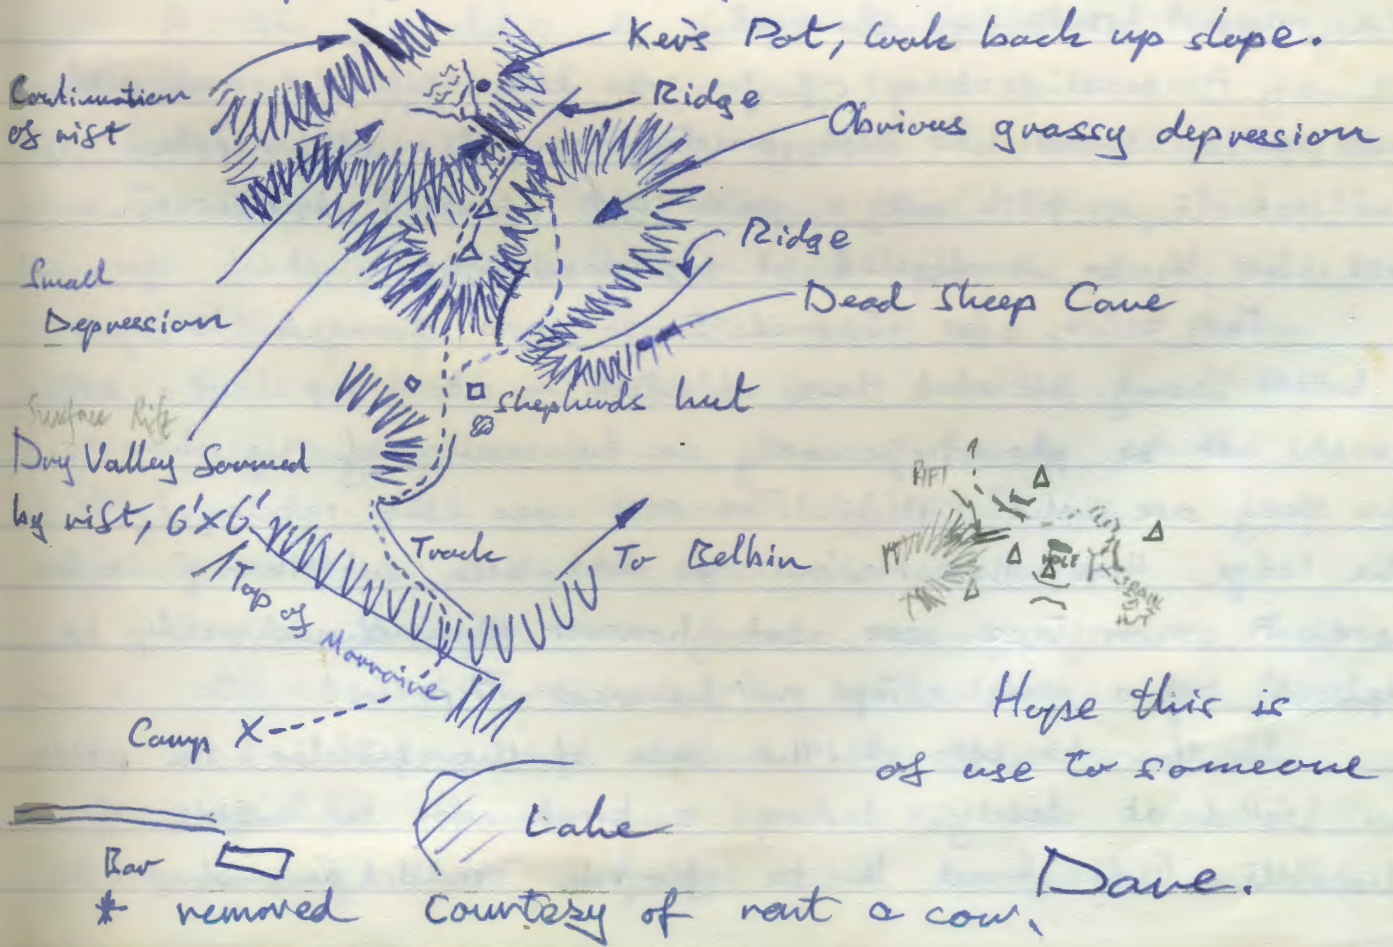 Kev's Pot, look back up slope.
Continuation
of rift
Ridge
Obvious grassy depression
Ridge
Small
Depression
Dead Sheep Cave
Shepherds hut
Surface Rift
Dry Valley formed
by rift, 6'x6'
Track
To Belbin
Top of Morraine
Camp X
RIFT
HOLE
HUT
Hope this is
of use to someone
Lake
Bar
Dave.
* removed courtesy of rent a cow.